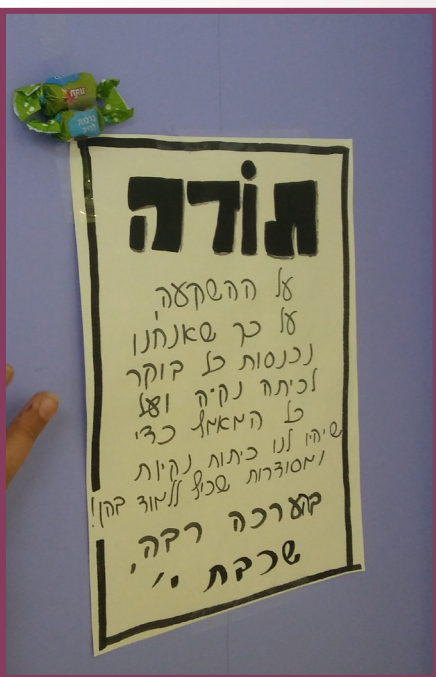 תודה
על ההשקעה,
על כך שאנחנו
נכנסות כל בוקר
לכיתה נקיה ועל
כל המאמץ כדי
שיהיו לנו כיתות נקיות
ומסודרות שכיף ללמוד בהן!
בהערכה רבה,
שכבת י'.